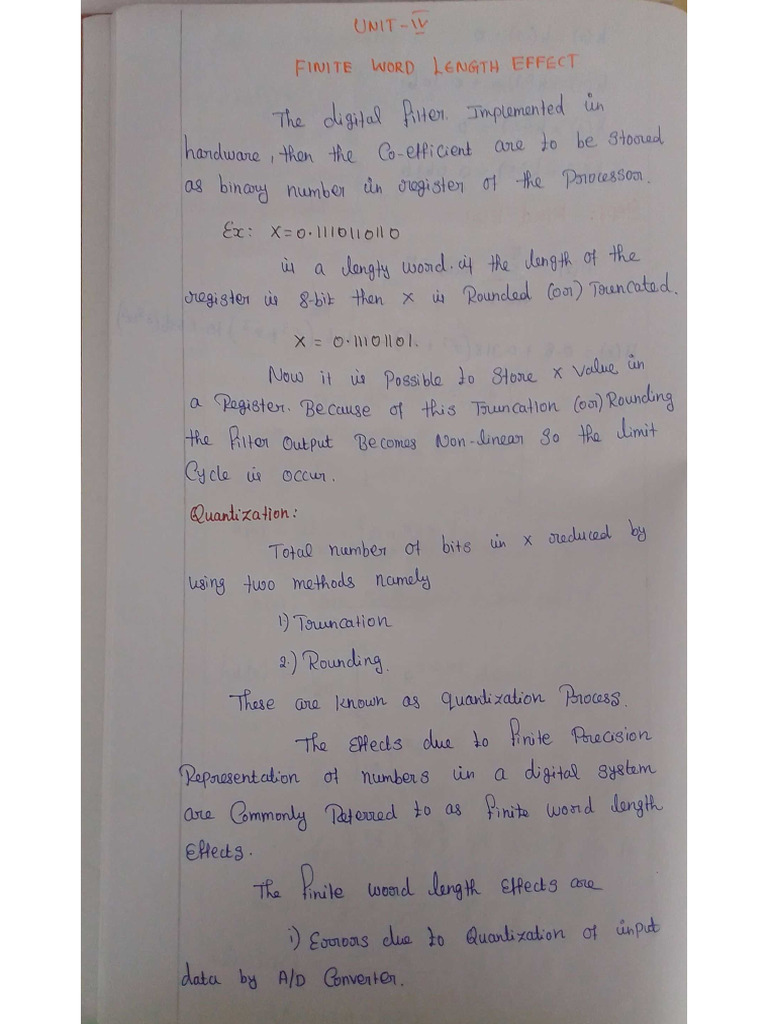 UNIT-IV
FINITE WORD LENGTH EFFECT
The digital filter. Implemented in
hardware, then the Co-efficient are to be stored
as binary number in register of the Processor.
Ex: X=0.1110110110
is a lengty word. if the length of the
register is 8-bit then X is Rounded (or) Truncated.
X = 0.11101101.
Now it is Possible to Store X Value in
a Register. Because of this Truncation (or) Rounding
the filter Output Becomes Non-linear So the limit
Cycle is occur.
Quantization:
Total number of bits in x reduced by
using two methods namely
1) Truncation
2.) Rounding.
These are known as quantization Process.
The Effects due to finite Precision
Representation of numbers in a digital system
are Commonly Referred to as finite word length
Effects.
The finite word length Effects are
i) Errors due to Quantization of input
data by A/D Converter.